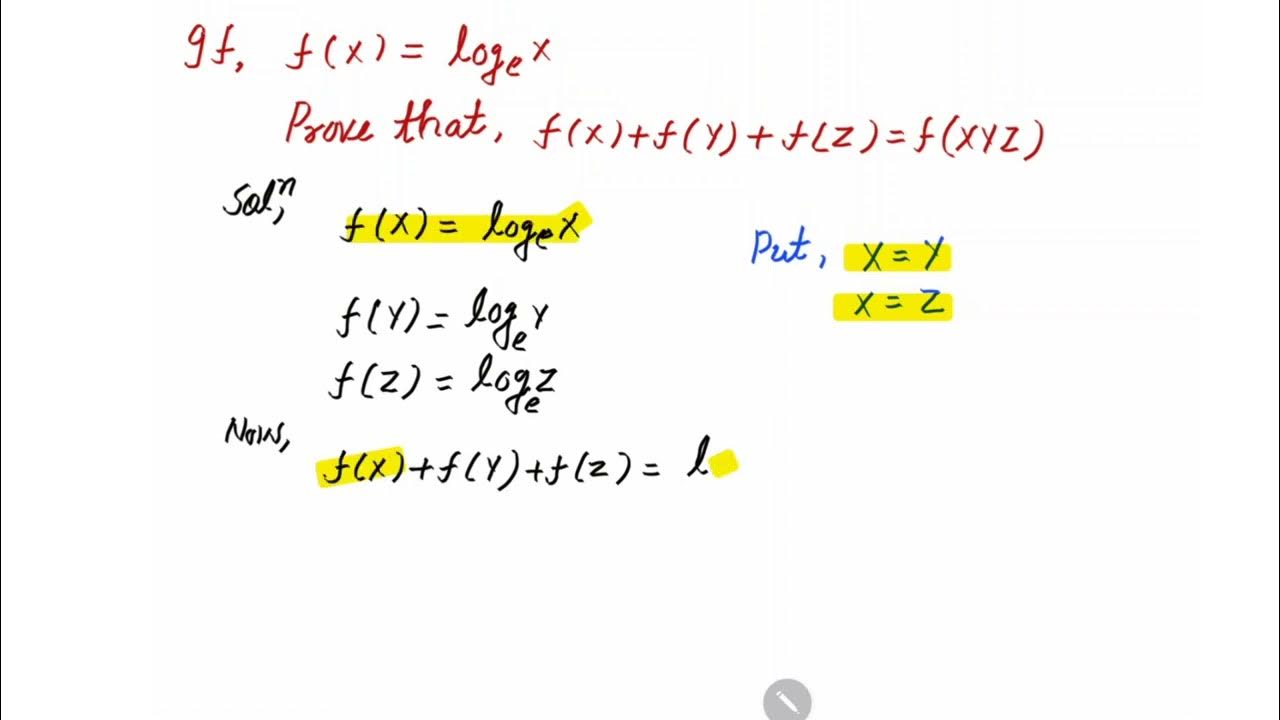 If, f(x) = logₑx
Prove that, f(x)+f(Y)+f(Z)=f(XYZ)
Solⁿ,
f(x) = logₑx
Put, x = Y
x = Z
f(Y) = logₑY
f(Z) = logₑZ
Now,
f(x)+f(Y)+f(Z) = l